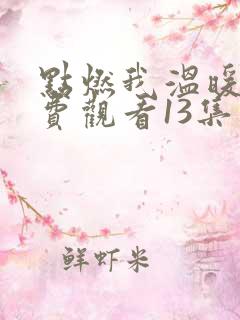 點燃我溫暖
費觀看13集
鲜虾米